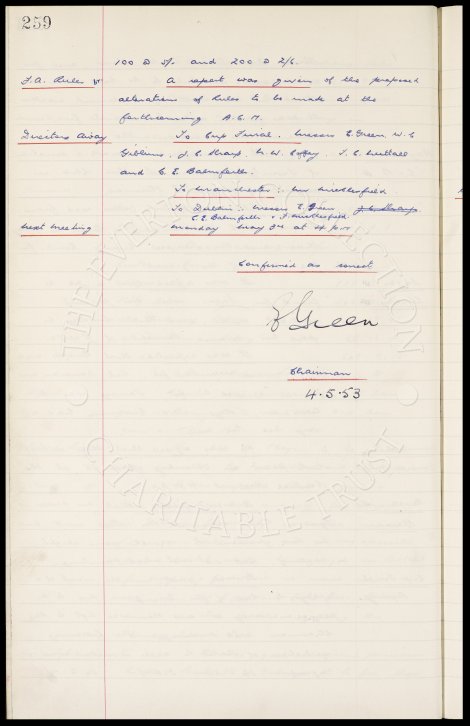 259
100 @ 5/- and 200 @ 2/6.
F.A. Rules A report was given of the proposed
alterations of Rules to be made at the
forthcoming A.G.M.
Directors Away To Cup Final. Messrs E. Green, W.C.
Gibbins, J.C. Sharp, N.W. Coffey, T.C. Nuttall
and C.E. Balmforth.
To Manchester: Mr Micklesfield
To Dublin: Messrs E Green J.C. Sharp
C.E. Balmforth & F. Micklesfield.
Next Meeting Monday May 3rd at 4 p.m.
Confirmed as correct
E Green
Chairman
4.5.53
THE EVERTON COLLECTION
CHARITABLE TRUST